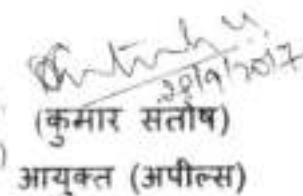 20/9/2017
(कुमार संतोष)
आयुक्त (अपील्स)